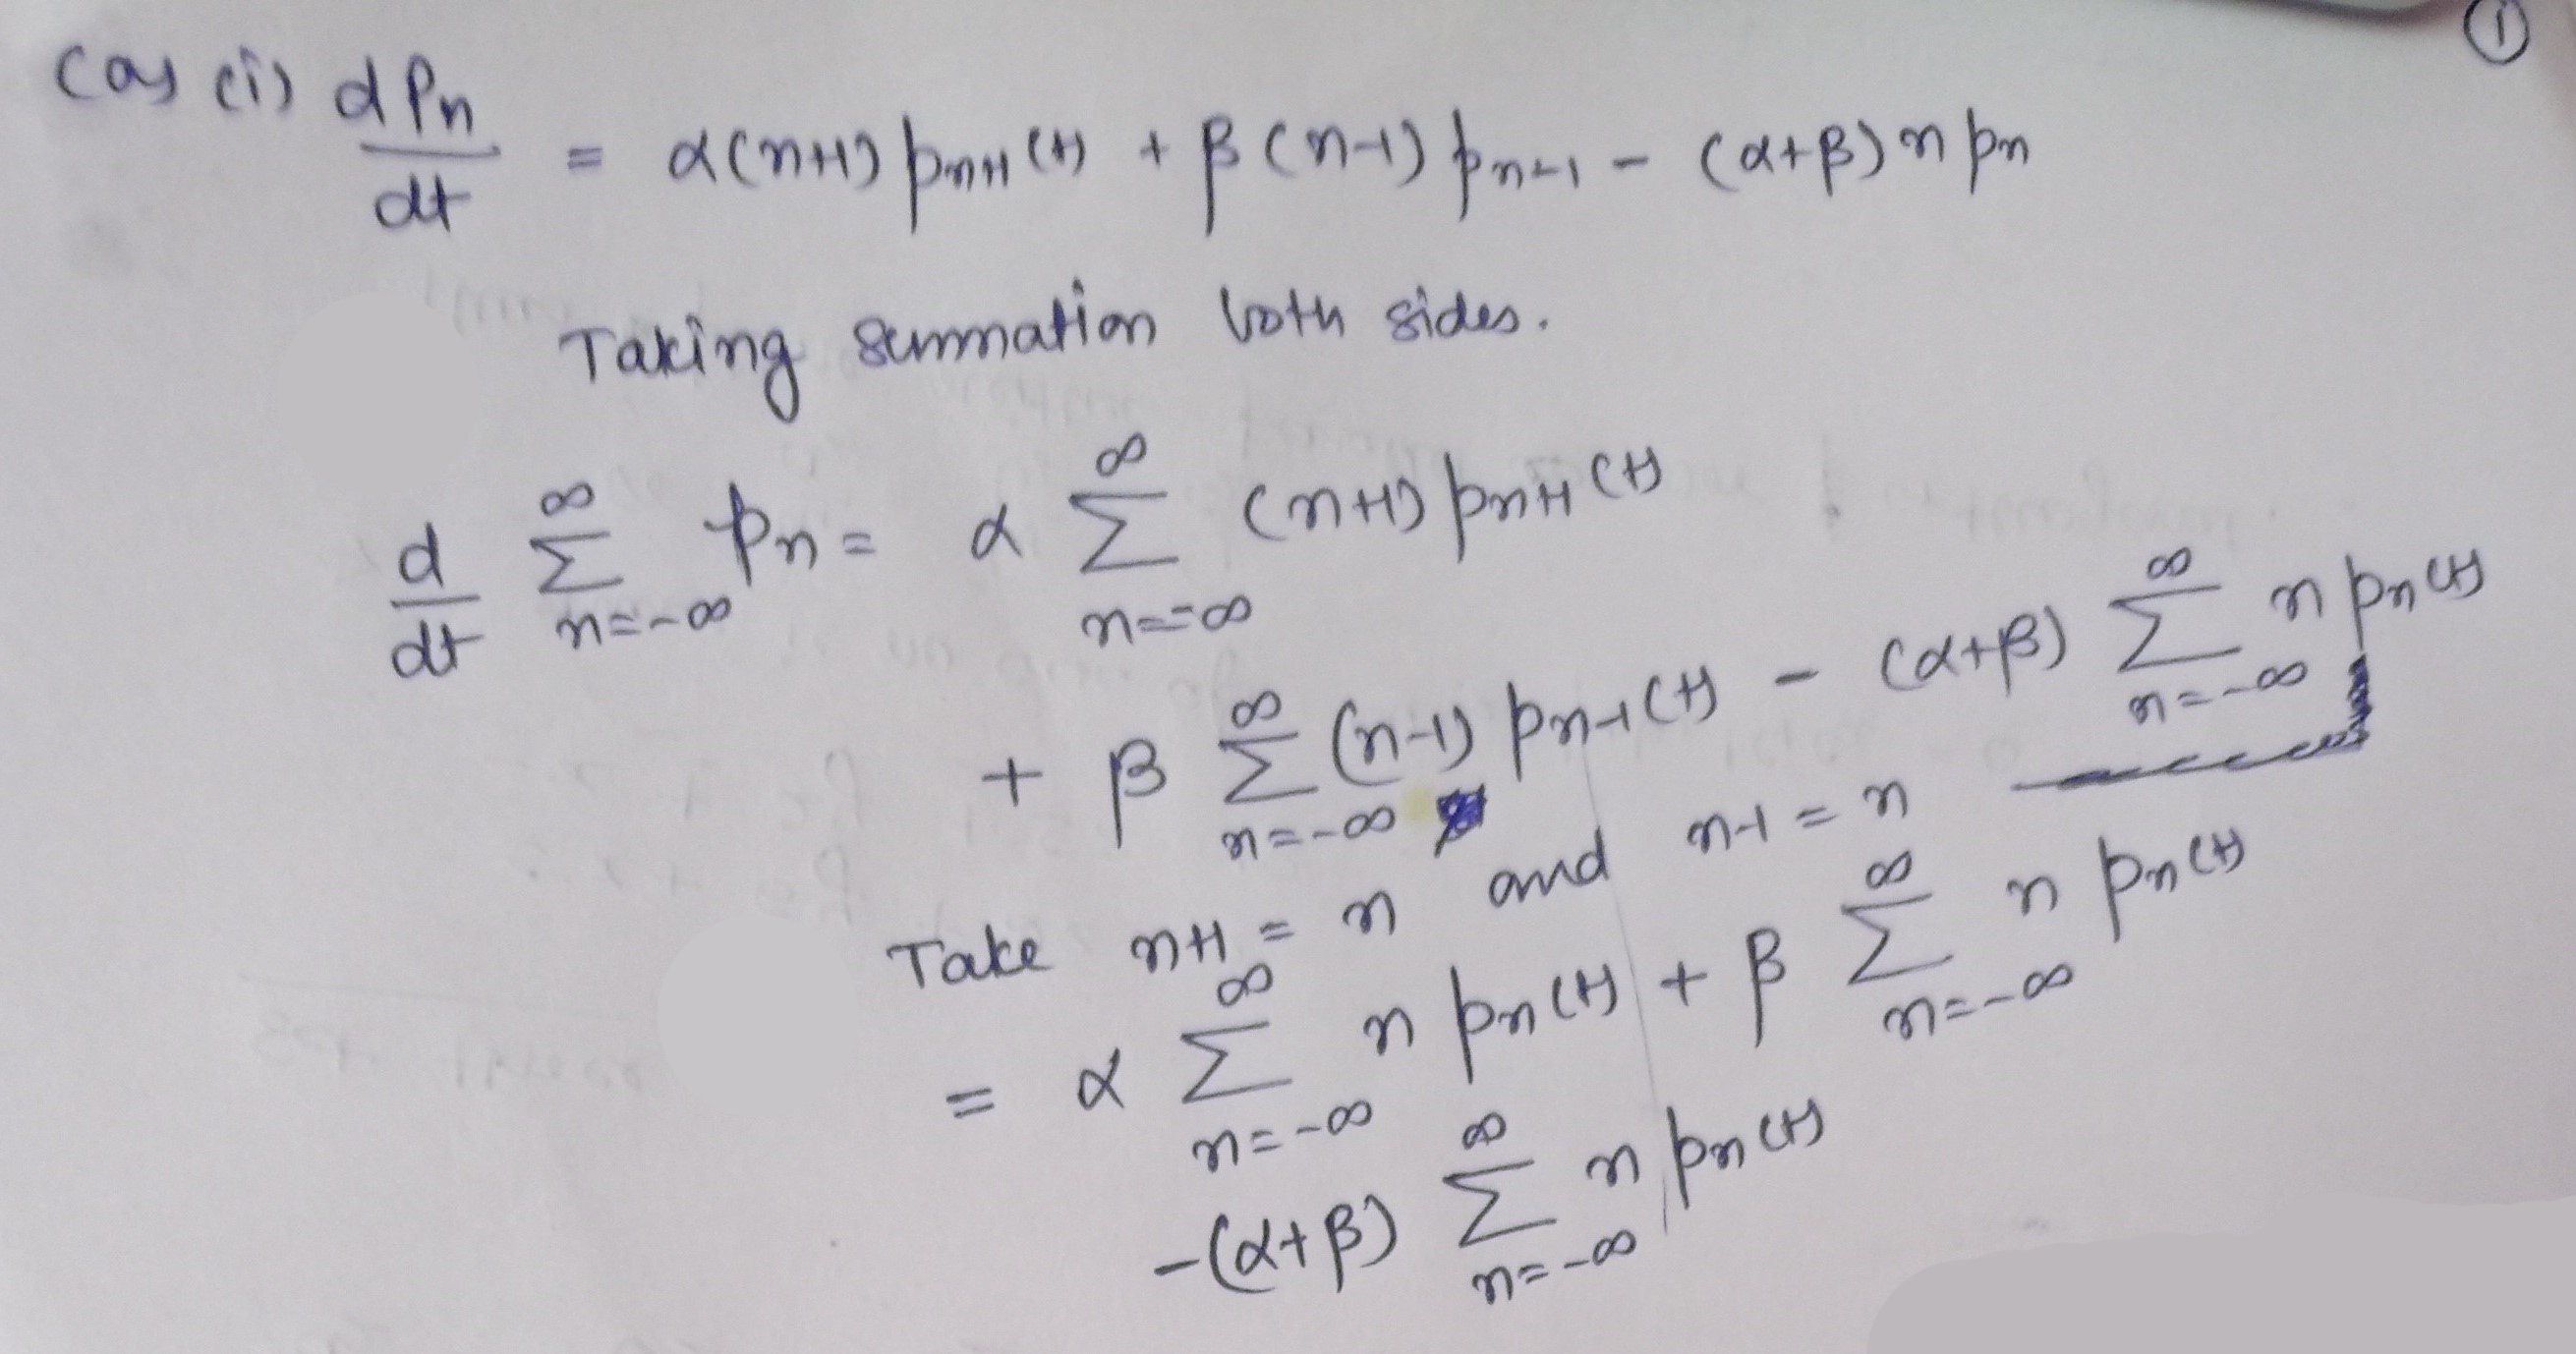 ①
Cas (i) dPn/dt = α(n+1) pn+1(t) + β(n-1) pn-1 - (α+β) n pn
Taking summation both sides.
d/dt ∞Σn=-∞ pn = α ∞Σn=-∞ (n+1) pn+1(t)
+ β ∞Σn=-∞ (n-1) pn-1(t) - (α+β) ∞Σn=-∞ n pn(t)
Take n+1 = n and n-1 = n
= α ∞Σn=-∞ n pn(t) + β ∞Σn=-∞ n pn(t)
-(α+β) ∞Σn=-∞ n pn(t)